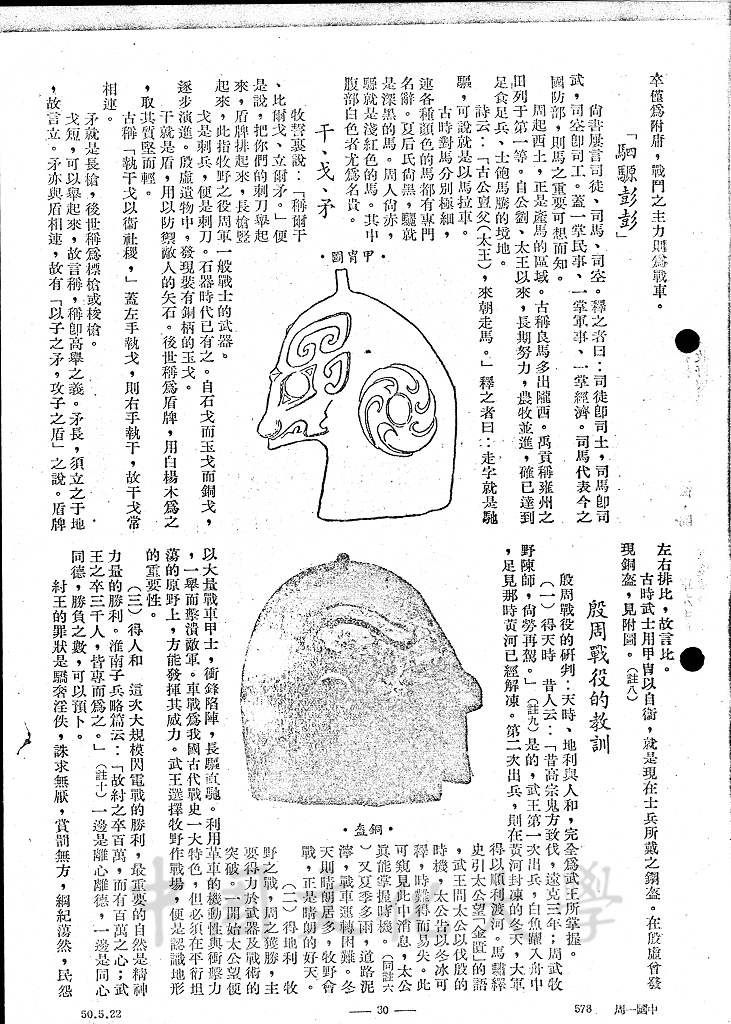 卒僅爲附庸，戰鬥之主力則爲戰車。
「駟騵彭彭」
尙書屢言司徒、司馬、司空。釋之者曰：司徒卽司土，司馬卽司
武，司空卽司工。蓋一掌民事、一掌軍事、一掌經濟。司馬代表今之
國防部，則馬之重要可想而知。
周起西土，正是產馬的區域。古稱良馬多出隴西。禹貢稱雍州之
田列于第一等。自公劉、太王以來，長期努力，農牧並進，確已達到
足食足兵、士飽馬騰的境地。
詩云：「古公亶父（太王），來朝走馬。」釋之者曰：走字就是馳
驅，可說就是以馬拉車。
古時對馬分別極細，
連各種顏色的馬都有專門
名辭。夏后氏尙黑，驪就
是深黑的馬。周人尙赤，
騵就是淺紅色的馬。其中
腹部白色者尤爲名貴。
干、戈、矛
牧誓裏說：「稱爾干
、比爾戈、立爾矛。」便
是說，把你們的刺刀舉起
來，盾牌排起來，長槍豎
起來，此指牧野之役周軍一般戰士的武器。
戈是刺兵，便是刺刀。石器時代已有之。自石戈而玉戈而銅戈，
逐步演進。殷虛遺物中，發現裝有銅柄的玉戈。
干就是盾，用以防禦敵人的矢石。後世稱爲盾牌，用白楊木爲之
，取其質堅而輕。
古稱「執干戈以衞社稷，」蓋左手執戈，則右手執干，故干戈常
相連。
矛就是長槍，後世稱爲標槍或梭槍。
戈短，可以舉起來，故言稱，稱卽高舉之義。矛長，須立之于地
，故言立。矛亦與盾相連，故有「以子之矛，攻子之盾」之說。盾牌
·圖冑甲·
左右排比，故言比。
古時武士用甲冑以自衞，就是現在士兵所戴之鋼盔。在殷虛曾發
現銅盔，見附圖。（註八）
殷周戰役的教訓
殷周戰役的硏判：天時、地利與人和，完全爲武王所掌握。
（一）得天時　昔人云：「昔高宗鬼方致伐，遠克三年；周武牧
野陳師，尙勞再駕。」（註九）是的，武王第一次出兵，白魚躍入舟中
，足見那時黃河已經解凍。第二次出兵，則在黃河封凍的冬天，大軍
得以順利渡河。馬驌繹
史引太公望「金匱」的語
，武王問太公以伐殷的
時機，太公告以冬冰可
釋，時難得而易失。此
可窺見此中消息，太公
眞能掌握時機。（同註六
）又夏季多雨，道路泥
濘，戰車運轉困難。冬
天則晴朗居多，牧野會
戰，正是晴朗的好天。
（二）得地利　牧
野之戰，周之獲勝，主
要得力於武器及戰術的
突破。一開始太公望便
以大量戰車甲士，衝鋒陷陣，長驅直馳。利用革車的機動性與衝擊力
，一舉而擊潰敵軍。車戰爲我國古代戰史一大特色，但必須在平衍坦
蕩的原野上，方能發揮其威力。武王選擇牧野作戰場，便是認識地形
的重要性。
（三）得人和　這次大規模閃電戰的勝利，最重要的自然是精神
力量的勝利。淮南子兵略篇云：「故紂之卒百萬，而有百萬之心；武
王之卒三千人，皆專而爲之。」（註十）一邊是離心離德，一邊是同心
同德，勝負之數，可以預卜。
紂王的罪狀是驕奢淫佚，誅求無厭，賞罰無方，綱紀蕩然，民怨
·盔銅·
50.5.22
— 30 —
578
周一國中